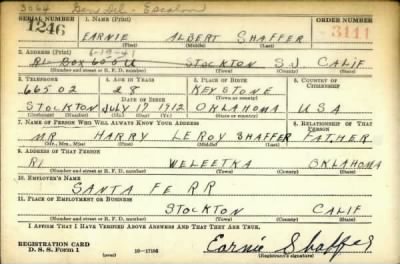 3064 Gen Del - Escalon
SERIAL NUMBER 1. NAME (Print) ORDER NUMBER
1246 EARNIE ALBERT SHAFFER 3111
(First) (Middle) (Last)
2. ADDRESS (Print) 6-19-41
R1 BOX 600 U STOCKTON S.J. CALIF
(Number and street or R. F. D. number) (Town) (County) (State)
3. TELEPHONE 4. AGE IN YEARS 5. PLACE OF BIRTH 6. COUNTRY OF CITIZENSHIP
66502 28 KEYSTONE
DATE OF BIRTH
STOCKTON JULY 17 1912 OKLAHOMA USA
(Exchange) (Number) (Mo.) (Day) (Yr.) (State or country)
7. NAME OF PERSON WHO WILL ALWAYS KNOW YOUR ADDRESS 8. RELATIONSHIP OF THAT PERSON
MR HARRY LEROY SHAFFER FATHER
(Mr., Mrs., Miss) (First) (Middle) (Last)
9. ADDRESS OF THAT PERSON
R1 WELEETKA OKLAHOMA
(Number and street or R. F. D. number) (Town) (County) (State)
10. EMPLOYER'S NAME
SANTA FE RR
11. PLACE OF EMPLOYMENT OR BUSINESS
STOCKTON CALIF
(Number and street or R. F. D. number) (Town) (County) (State)
I AFFIRM THAT I HAVE VERIFIED ABOVE ANSWERS AND THAT THEY ARE TRUE.
REGISTRATION CARD
D. S. S. Form 1 16-17105 Earnie Shaffer
(Registrant's signature)